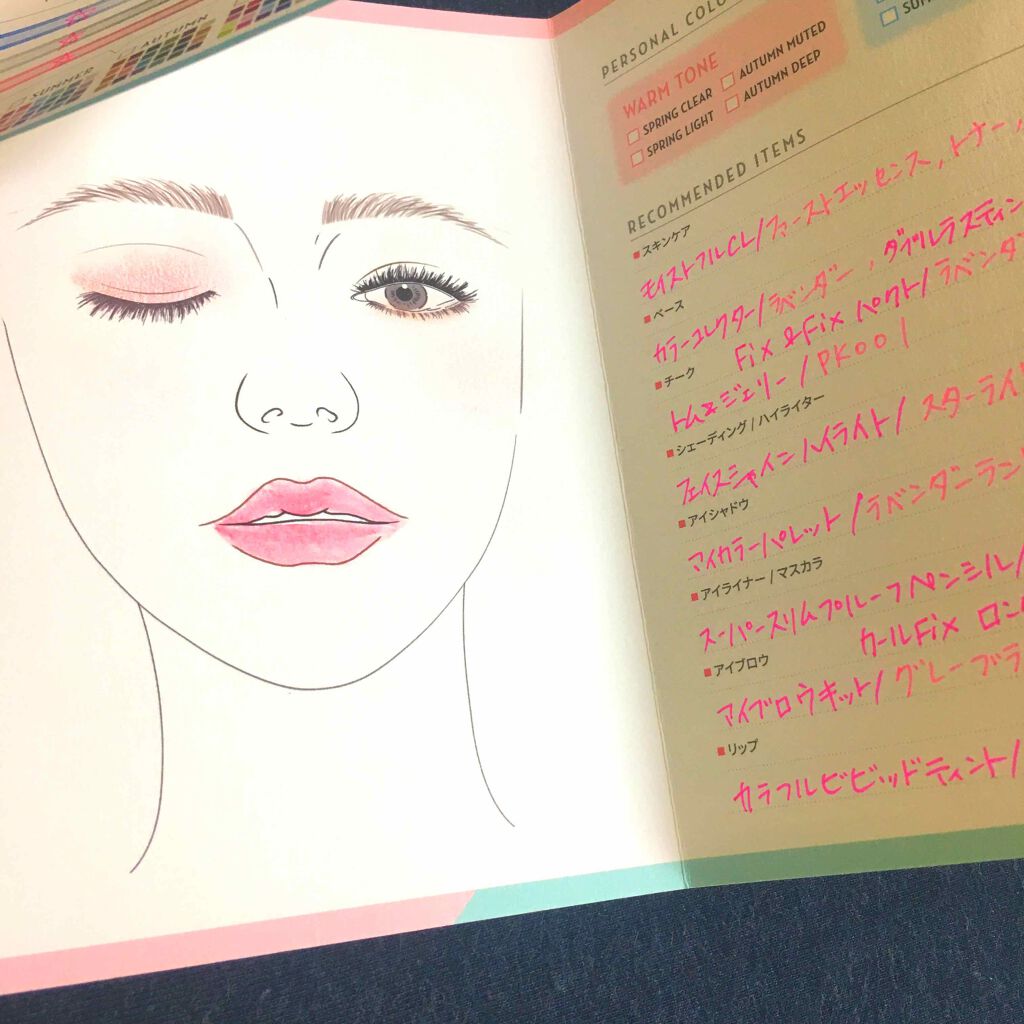 AUTUMN
SUMMER
PERSONAL COLO
WARM TONE
SPRING CLEAR
AUTUMN MUTED
SPRING LIGHT
AUTUMN DEEP
SUM
RECOMMENDED ITEMS
■スキンケア
モイストフルCL/ファーストエッセンス,トナー,
■ベース
カラーコレクター/ラベンダー,ダブルラスティン
Fix &Fix パクト/ラベンダ
■チーク
トム&ジェリー/PK001
■シェーディング/ハイライター
フェイスシャインハイライト/スターライ
■アイシャドウ
マイカラーパレット/ラベンダーラン
■アイライナー/マスカラ
スーパースリムプルーフペンシル/
カールFix ロン
■アイブロウ
アイブロウキット/グレーブラ
■リップ
カラフルビビッドティント/